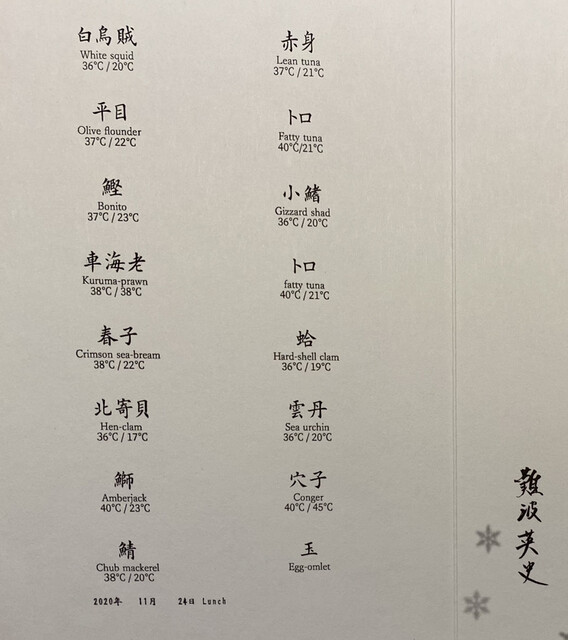 白烏賊
White squid
36℃ / 20℃
平目
Olive flounder
37℃ / 22℃
鰹
Bonito
37℃ / 23℃
車海老
Kuruma-prawn
38℃ / 38℃
春子
Crimson sea-bream
38℃ / 22℃
北寄貝
Hen-clam
36℃ / 17℃
鰤
Amberjack
40℃ / 23℃
鯖
Chub mackerel
38℃ / 20℃
赤身
Lean tuna
37℃ / 21℃
トロ
Fatty tuna
40℃/21℃
小鰭
Gizzard shad
36℃ / 20℃
トロ
fatty tuna
40℃ / 21℃
蛤
Hard-shell clam
36℃ / 19℃
雲丹
Sea urchin
36℃ / 20℃
穴子
Conger
40℃ / 45℃
玉
Egg-omlet
2020年 11月 24日 Lunch
難波英史